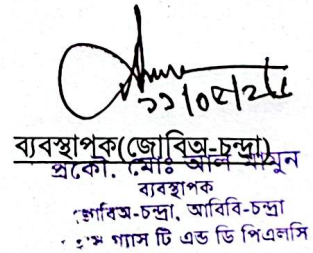 ব্যবস্থাপক(জোবিঅ-চন্দ্রা)
প্রকৌ. মোঃ আল মামুন
ব্যবস্থাপক
জোবিঅ-চন্দ্রা, আবিবি-চন্দ্রা
গ্যাস টি এন্ড ডি পিএলসি